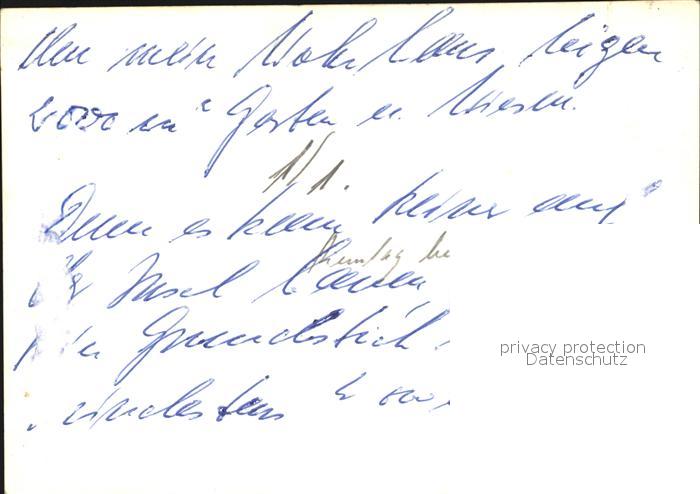 Um mein Wohnhaus liegen
2000 m² Garten u. Wiesen.
1/1.
Denn es kann keiner auf
der Insel bauen
Grundstück
mindestens 2 000
privacy protection
Datenschutz